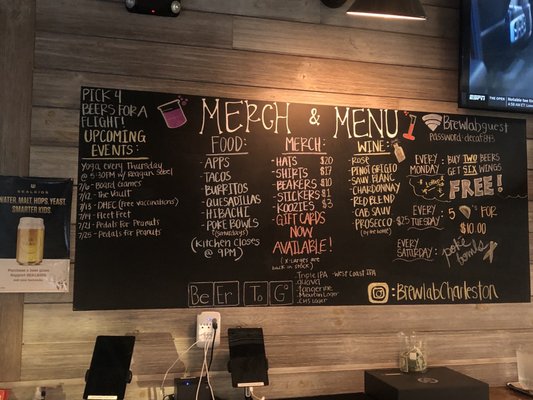 PICK 4
BEERS FOR A
FLIGHT!
UPCOMING
EVENTS:
YOGA EVERY THURSDAY
@ 5:30PM w/ REAGAN SOBEL
7/6 - BOARD GAMES
7/12 - THE VAULT
7/14 - FLEET FEET
7/21 - PEDALS FOR PEANUTS
7/25 - PEDALS FOR PEANUTS
MERCH & MENU
FOOD:
APPS
TACOS
BURRITOS
QUESADILLAS
HIBACHI
POKE BOWLS
(SATURDAYS)
(KITCHEN CLOSES
@ 9PM)
MERCH:
HATS $20
SHIRTS $17
BEAKERS $10
STICKERS $1
KOOZIES $3
GIFT CARDS
NOW
AVAILABLE!
(X-LARGES ARE
BACK IN STOCK)
WINE:
ROSÉ
PINOT GRIGIO
SAUV BLANC
CHARDONNAY
RED BLEND
CAB SAUV
PROSECCO
Brewlabguest
EVERY
MONDAY
BUY TWO BEERS
GET SIX WINGS
FREE!
EVERY
$2 TUESDAY
5 FOR
$10.00
EVERY
SATURDAY
poke
bowls
BeErToG
Triple IPA
West Coast IPA
tangerine
BREWLABCHARLESTON
WATER, MALT, HOPS, YEAST,
SMARTER KIDS.
ESPN